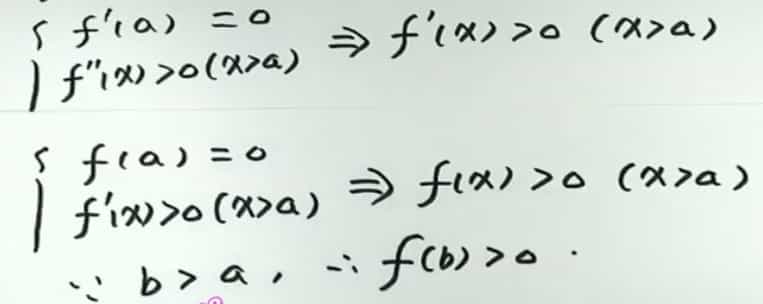 { f'(a) = 0
f''(x) > 0 (x>a) ⇒ f'(x) > 0 (x>a)
{ f(a) = 0
f'(x) > 0 (x>a) ⇒ f(x) > 0 (x>a)
∵ b > a , ∴ f(b) > 0 .